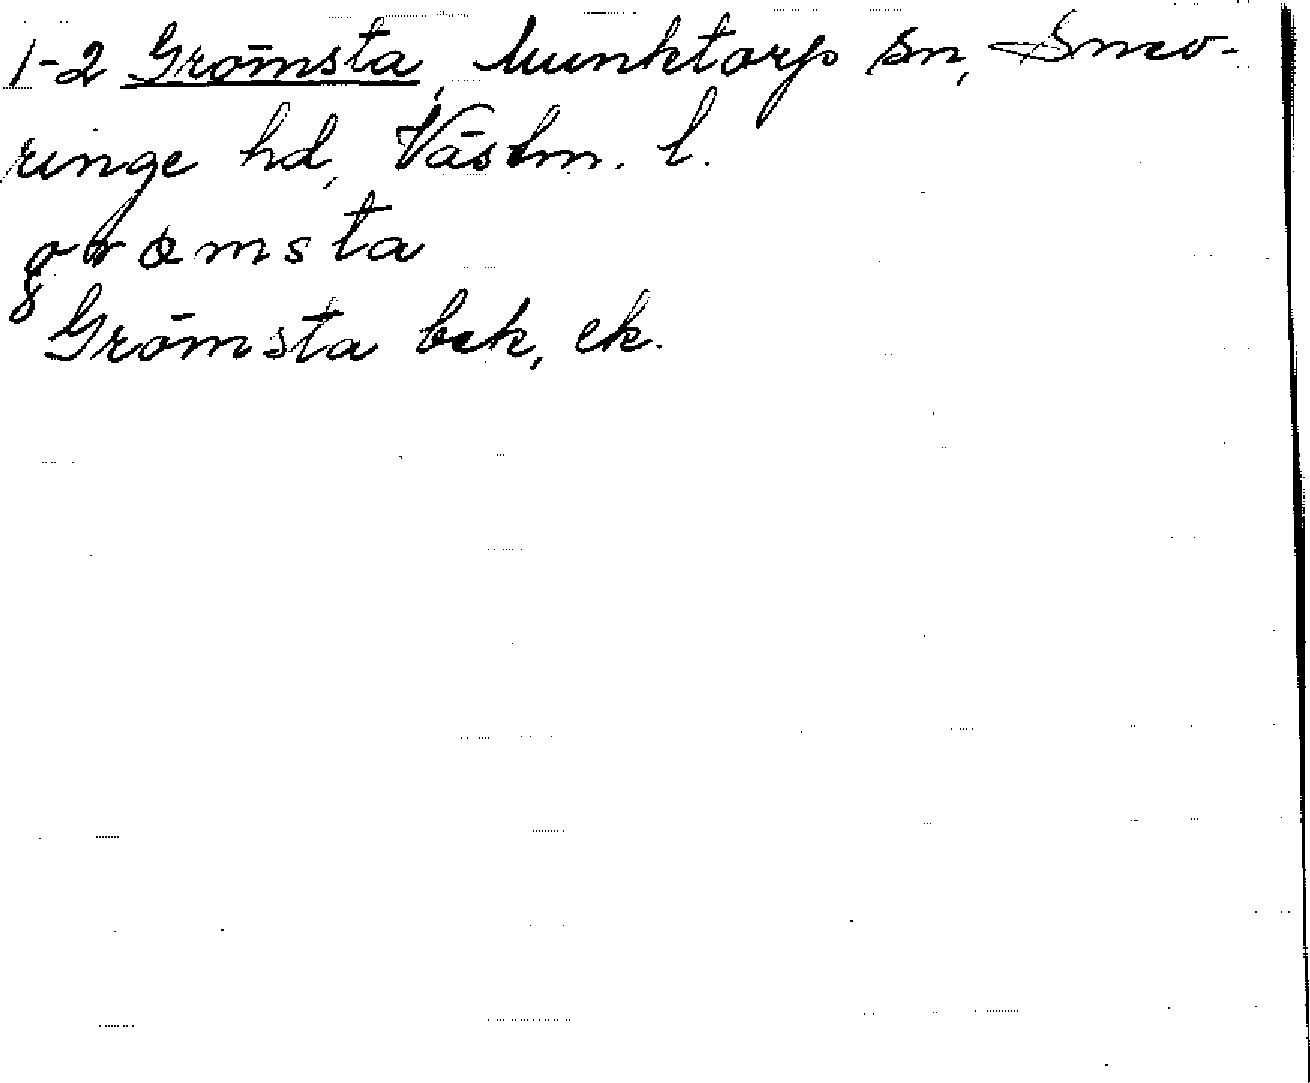 1-2 Grömsta, Munktorp sn, Snev-
ringe hd, Västm. l.
grømsta
Grömsta bck, ek.